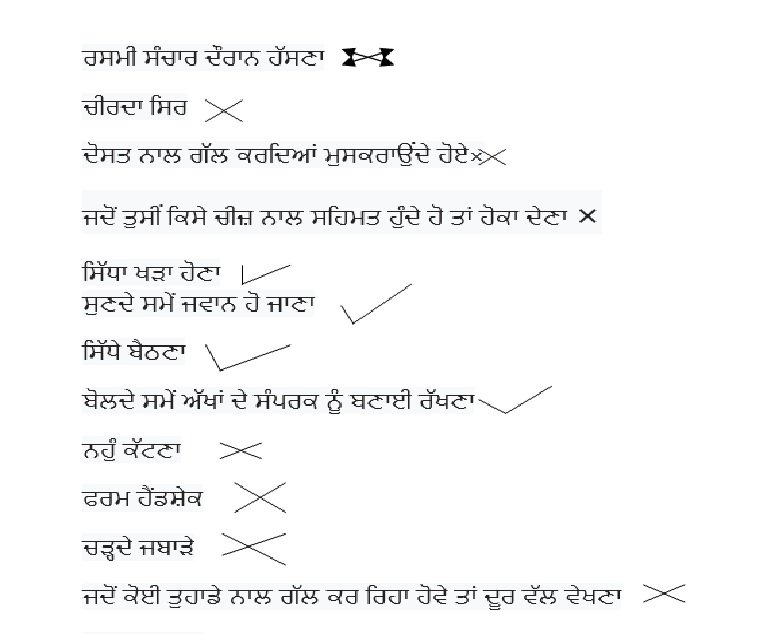 ਰਸਮੀ ਸੰਚਾਰ ਦੌਰਾਨ ਹੱਸਣਾ
ਚੀਰਦਾ ਸਿਰ
ਦੋਸਤ ਨਾਲ ਗੱਲ ਕਰਦਿਆਂ ਮੁਸਕਰਾਉਂਦੇ ਹੋਏ×
ਜਦੋਂ ਤੁਸੀਂ ਕਿਸੇ ਚੀਜ਼ ਨਾਲ ਸਹਿਮਤ ਹੁੰਦੇ ਹੋ ਤਾਂ ਹੋਕਾ ਦੇਣਾ ×
ਸਿੱਧਾ ਖੜਾ ਹੋਣਾ
ਸੁਣਦੇ ਸਮੇਂ ਜਵਾਨ ਹੋ ਜਾਣਾ
ਸਿੱਧੇ ਬੈਠਣਾ
ਬੋਲਦੇ ਸਮੇਂ ਅੱਖਾਂ ਦੇ ਸੰਪਰਕ ਨੂੰ ਬਣਾਈ ਰੱਖਣਾ
ਨਹੁੰ ਕੱਟਣਾ
ਫਰਮ ਹੈਂਡਸ਼ੇਕ
ਚੜ੍ਹਦੇ ਜਬਾੜੇ
ਜਦੋਂ ਕੋਈ ਤੁਹਾਡੇ ਨਾਲ ਗੱਲ ਕਰ ਰਿਹਾ ਹੋਵੇ ਤਾਂ ਦੂਰ ਵੱਲ ਵੇਖਣਾ